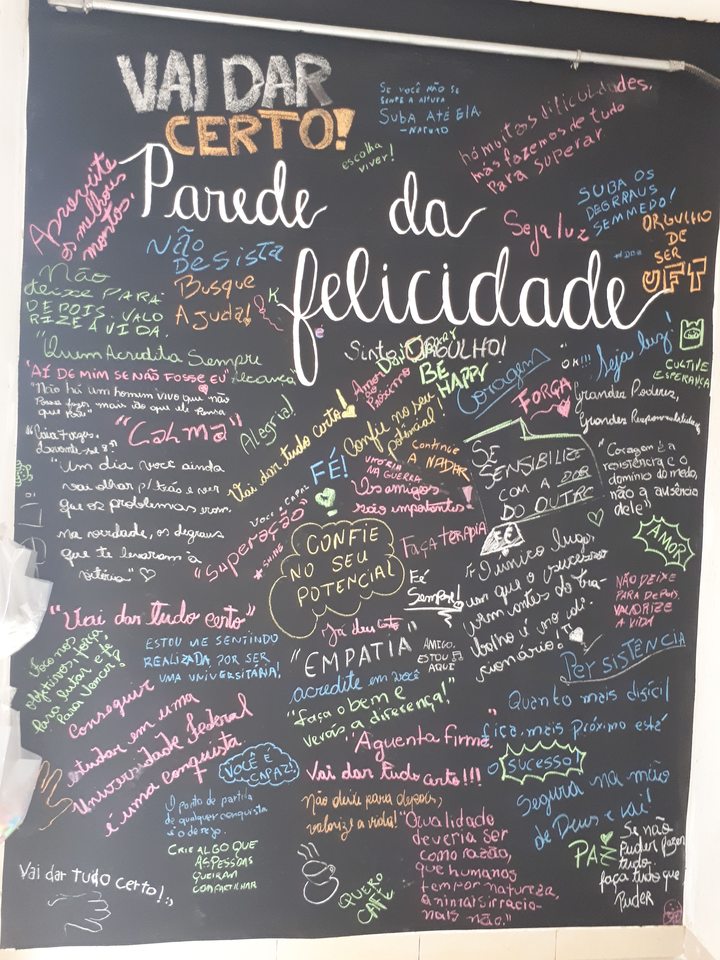 VAI DAR
CERTO!
SE VOCÊ NÃO SE
SENTE A ALTURA
SUBA ATÉ ELA
- NATUTO
escolha
viver!
há muitas dificuldades,
mas fazemos de tudo
Para superar
Parede da
felicidade
Aproveite
os melhores
montos.
NÃO
DESISTA
Seja luz
SUBA OS
DEGRRAUS
SEMMEDO!
ORGULHO
DE
SER
UFT
Não
deixe PARA
DEPOIS. VALO
RIZE A VIDA.
Busque
AJuda!
K
Sinto ORGULHO!
BE
HAPPY
Coragem
OK!!!
Seja luz!
CULTIVE
ESPERANÇA
"Quem Acredita Sempre
Alcança"
"AÍ DE MIM SE NÃO FOSSE EU"
"Não há um homem vivo que não
Possa fazer mais do que ele Pensa
que Pode"
Alegria!
Amor ao
Próximo
FORÇA
Grandes Poderes,
Grandes Responsabilidades
"CALMA"
Vai dar tudo certo!
Confie no seu
potêncial!
Continue
A NADAR
SE
SENSIBILIZE
COM A DOR
DO OUTRO
"Coragem é a
resistência e o
domínio do medo,
não a ausência
dele"
"um dia você ainda
vai olhar p/ trás e ver
que os problemas eram,
na verdade, os degraus
que te levaram à
vitória" ♡
FÉ!
VITÓRIA
NA GUERRA
Os amigos
são importantes!
Você é CAPAZ
"Superação"
★ SHINE
CONFIE
NO SEU
POTENCIAL
FAÇA TERAPIA
FÉ
AMOR
Fé
Sempre!
"O único lugar
em que o sucesso
vem antes do tra-
balho é no dici-
onário!"
NÃO DEIXE
PARA DEPOIS.
VALORIZE
A VIDA
"Vai dar tudo certo"
ESTOU ME SENTINDO
REALIZADA POR SER
UMA UNIVERSITÁRIA!
Já deu certo
"EMPATIA"
AMIGO,
ESTOU
AQUI
acredite em você
"Faça o bem e
verás a diferença!"
PERSISTÊNCIA
Para lutar e
Para vencer!
Conseguir
estudar em uma
Universidade Federal
é uma conquista
"Aguenta firme"
Quanto mais difícil
fica, mais próximo está
o SUCESSO!
VOCÊ É
CAPAZ!
Vai dar tudo certo!!!
O ponto de partida
de qualquer conquista
é o desejo.
Não deixe para depois,
valorize a vida!
Segura na mão
de Deus e vai!
CRIE ALGO QUE
AS PESSOAS
QUEIRAM
COMPARTILHAR
"Qualidade
deveria ser
como razão,
que humanos
tem por natureza,
animais irracio-
nais não."
PAZ
Se não
Puder fazer
tudo,
faça tudo que
Puder
Vai dar tudo certo!
QUERO
CAFÉ